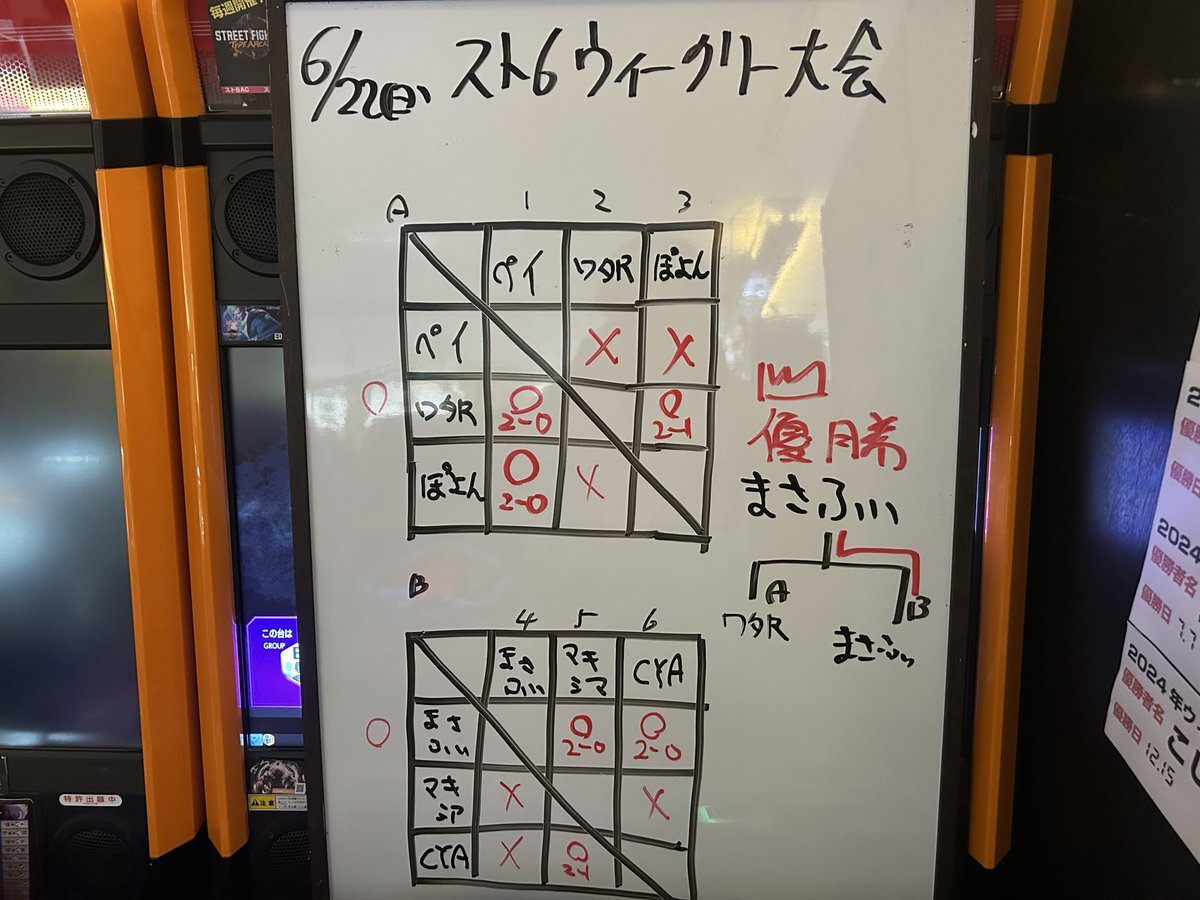 6/22(日) スト6ウィークリー大会
毎週開催
STREET FIGH
TYPE ARCA
スト6AC
A 1 2 3
ペイ ワタR ぽよん
ペイ X X
○ ワタR ○ 2-0 ○ 2-1
ぽよん ○ 2-0 X
優勝
まさふぃ
A B
ワタR まさふぃ
B 4 5 6
まさふぃ マキシマ CYA
○ まさふぃ ○ 2-0 ○ 2-0
マキシマ X X
CYA X ○ 2-1
ED
この台は
GROUP
特許出願中
注意
2024
優勝者名
優勝日 7.7
2024年ウ
優勝者名
優勝日 12.15